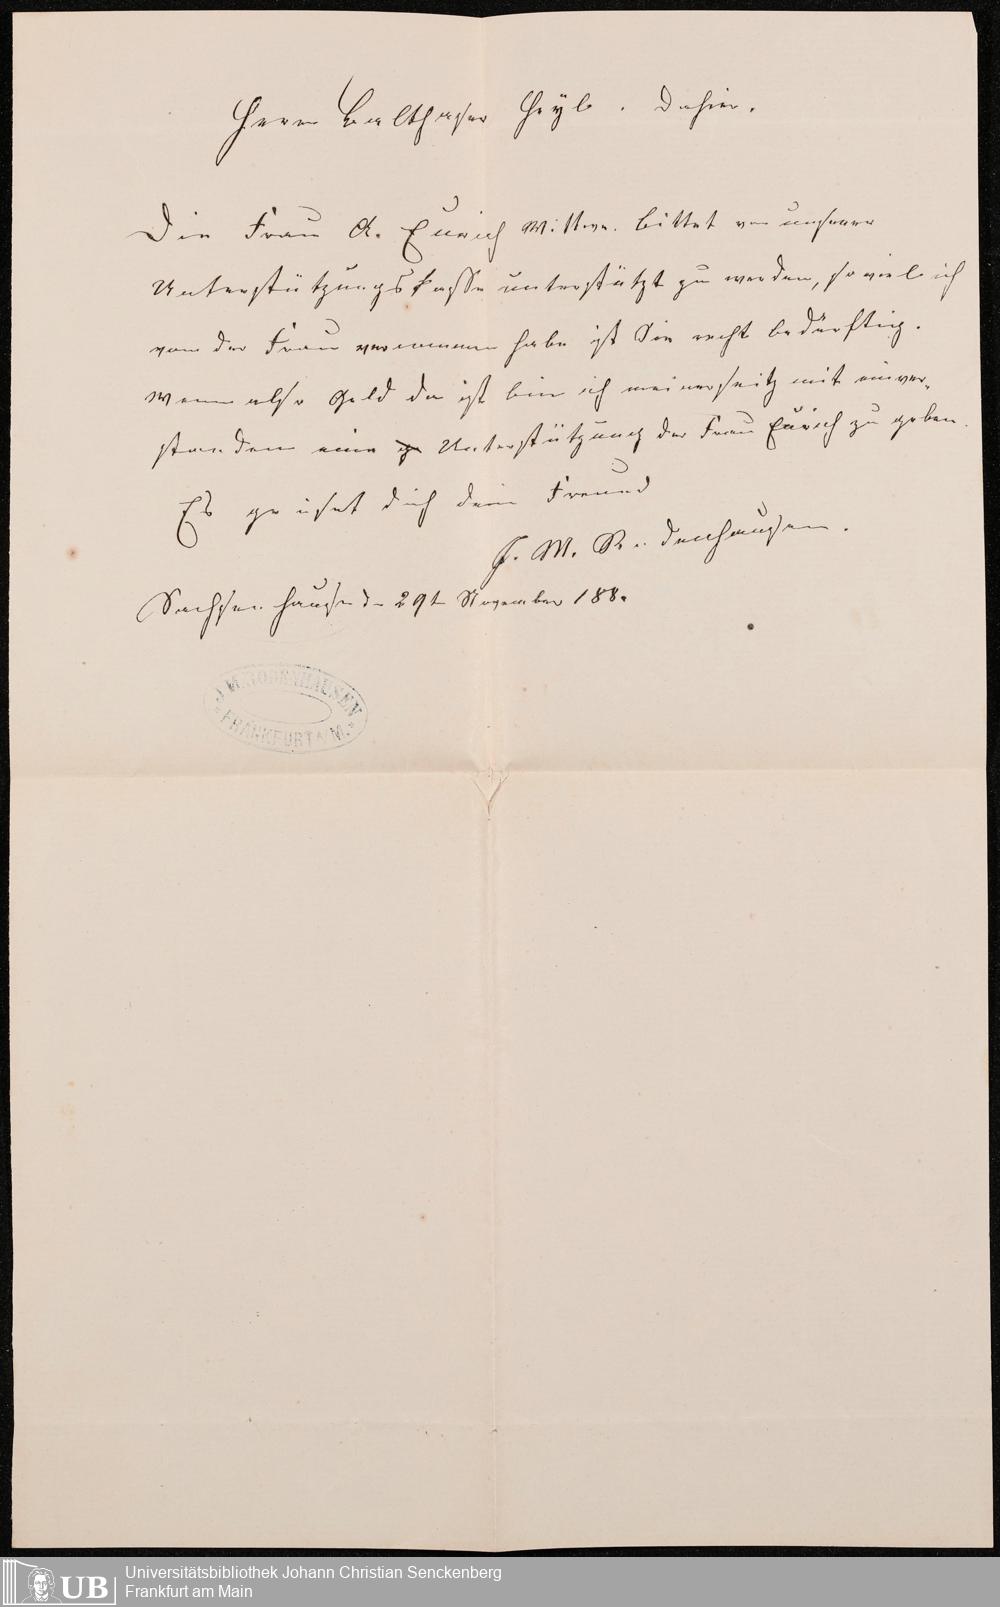 Herrn Balthaser Heyl. Dahier.
Die Frau A. Eurich Wittwe. bittet von unserer
Unterstützungskasse unterstützt zu werden, so viel ich
von der Frau vernommen habe ist Sie recht bedürftig.
Wenn also Geld da ist bin ich meinerseitz mit einver-
standen eine Unterstützung der Frau Eurich zu geben.
Es grüset dich dein Freund
J. M. Rodenhausen.
Sachsenhausen d. 29t November 1880
J. M. RODENHAUSEN
* FRANKFURT A/M. *
UB
Universitätsbibliothek Johann Christian Senckenberg
Frankfurt am Main